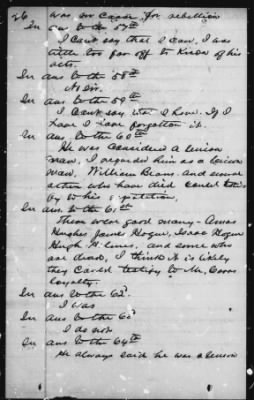 26 was no cause for rebellion
In ans to the 57th
I cant say that I can, I was
little too far off to know of his
acts.
In ans to the 58th
No Sir.
In ans to the 59th
I cant say that I have. If I
have I have forgotten it.
In ans to the 60th
He was considered a Union
man, I regarded him as a Union
man, William Beans and several
others who have died could testify
by to his reputation,
In ans to the 61st
There were good many - Amos
Hughes James Hogue, Isaac Hogue
Hugh and some who
are dead, I think it is likely
they could testify to Mr,
loyalty.
In ans to the 62d
I was
In ans to the 63d
I do not
In ans to the 64th
He always said he was a Union